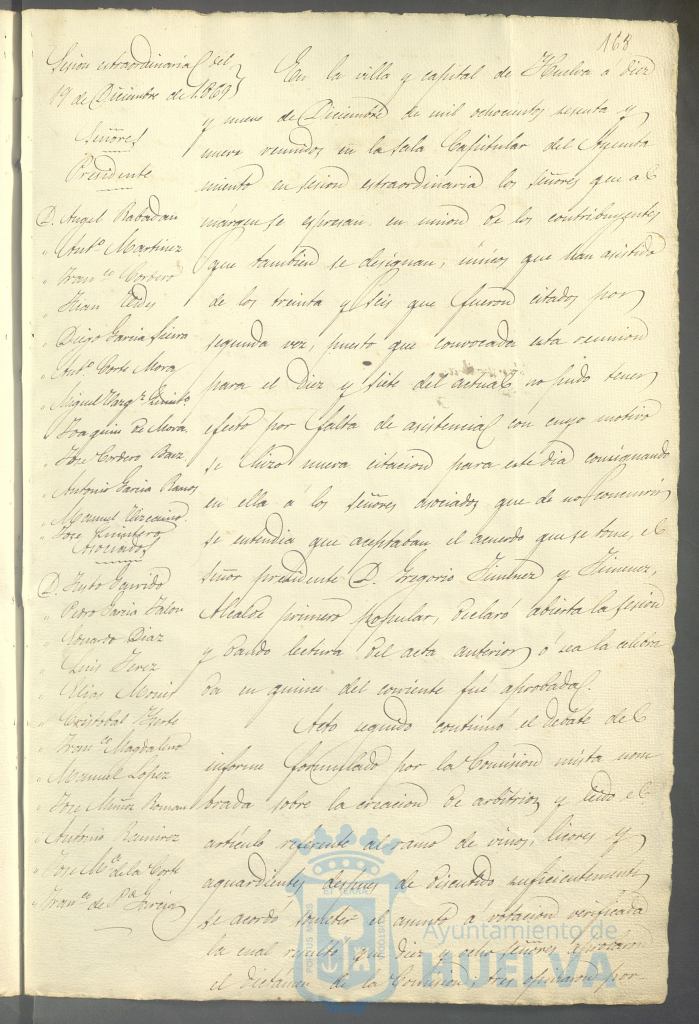 168
Sesion extraordinaria del
19 de Diciembre de 1869
Señores
Presidente
D. Angel Rabadan
" Antº Martinez
" Franco Cordero
" Juan
" Diego Garcia Sierra
" Antº Corte Mora
" Miguel Vazqz
" Joaquin de Mora
" Jose Cordero Baez
" Antonio Garcia Ramos
" Manuel Vizcaino
" Jose Quintero
Asociados
D. Justo Garrido
" Pedro Garcia Jalon
" Eduardo Diaz
" Luis Perez
" Elias
" Cristobal
" Franco Magdaleno
" Manuel López
" Jose Muñiz Roman
" Antonio Ramirez
" Jose Mª de la Corte
" Franco de Pª Garcia
En la villa y capital de Huelva á diez
y nueve de Diciembre de mil ochocientos sesenta y
nueve reunidos en la Sala Capitular del Ayunta
miento en sesion extraordinaria los señores que al
márgen se espresan en union de los contribuyentes
que tambien se designan, únicos que han asistido
de los treinta y seis que fueron citados por
segunda vez, puesto que convocada esta reunion
para el diez y siete del actual no pudo tener
efecto por falta de asistencia con cuyo motivo
se hizo nueva citacion para este dia consignando
en ella á los señores asociados que de no concurrir
se entendia que aceptaban el acuerdo que se tome, el
señor presidente D. Gregorio Jimenez y Jimenez,
Alcalde primero popular, declaró abierta la sesion
y dando lectura del acta anterior ó sea la celebra
da en quince del corriente fué aprobada.
Acto seguido continuó el debate del
informe formulado por la Comision mista nom
brada sobre la creacion de arbitrios y leido el
artículo referente al ramo de vinos, licores y
aguardientes despues de discutido suficientemente
se acordó someter el asunto á votacion verificada
la cual resultó que diez y ocho señores aprobaron
el dictámen de la Comision, tres opinaron por
PORTUS MARIS
ET TERRÆ
CUSTODIA
Ayuntamiento de
HUELVA